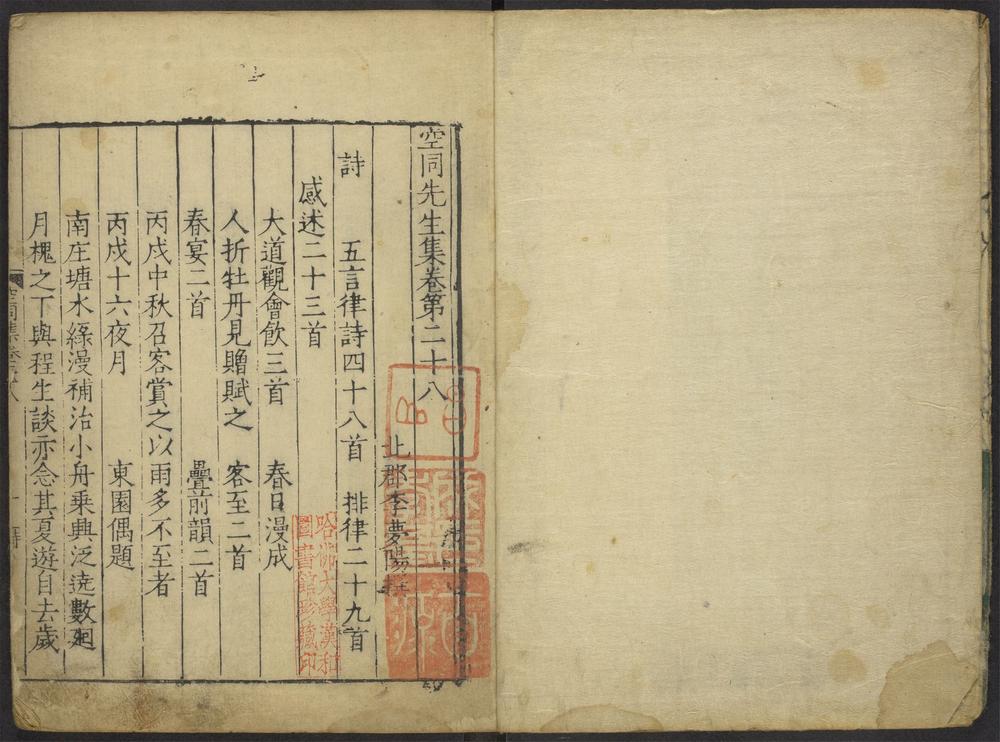 空同先生集卷第二十八
北郡李夢陽撰
詩 五言律詩四十八首 排律二十九首
感述二十三首
大道觀會飲三首 春日漫成
人折牡丹見贈賦之 客至二首
春宴二首 疊前韻二首
丙戌中秋召客賞之以雨多不至者
丙戌十六夜月 東園偶題
南庄塘水緣漫補治小舟乘興泛遶數廻
月槐之下與程生談亦念其夏遊自去歲
哈佛大學漢和
圖書館珍藏印